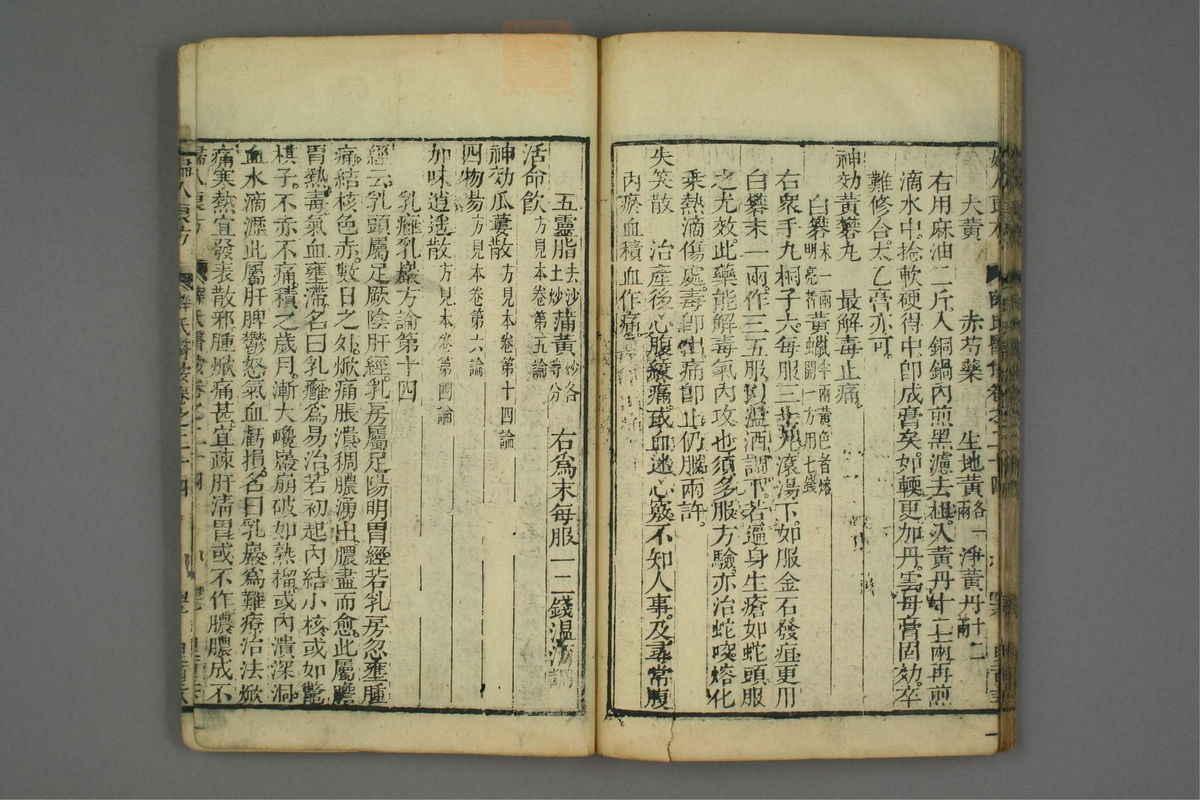 大黃 赤芍藥 生地黃各一兩 淨黃丹十二兩
右用麻油二斤入銅鍋內煎黑濾去粗入黃丹十二兩再煎
滴水中捻軟硬得中卽成膏矣如輭更加丹雲母膏固効卒
難修合太乙膏亦可
神効黃礬丸 最解毒止痛
白礬末一兩明亮者 黃蠟半兩黃色者熔開一方用七錢
右衆手丸桐子大每服三十丸滾湯下如服金石發疽更用
白礬末一兩作三五服以溫酒調下若遍身生瘡如蛇頭服
之尤效此藥能解毒氣內攻也須多服方驗亦治蛇咬熔化
乘熱滴傷處毒卽出痛卽止仍服兩許
失笑散 治產後心腹痛或血迷心竅不知人事及尋常腹
內瘀血積血作痛
五靈脂去沙土炒 蒲黃炒各等分 右爲末每服一二錢溫酒調
活命飮方見本卷第五論
神効瓜蔞散方見本卷第十四論
四物湯方見本卷第六論
加味逍遙散方見本卷第四論
乳癰乳巖方論第十四
經云乳頭屬足厥陰肝經乳房屬足陽明胃經若乳房忽壅腫
痛結核色赤數日之外焮痛脹潰稠膿湧出膿盡而愈此屬膽
胃熱毒氣血壅滯名曰乳癰爲易治若初起內結小核或如鱉
棋子不赤不痛積之歲月漸大巉巖崩破如熟榴或內潰深洞
血水滴瀝此屬肝脾鬱怒氣血虧損名曰乳巖爲難療治法焮
痛寒熱宜發表散邪腫焮痛甚宜疎肝淸胃或不作膿膿成不
婦人良方 薛氏醫案卷之二十四